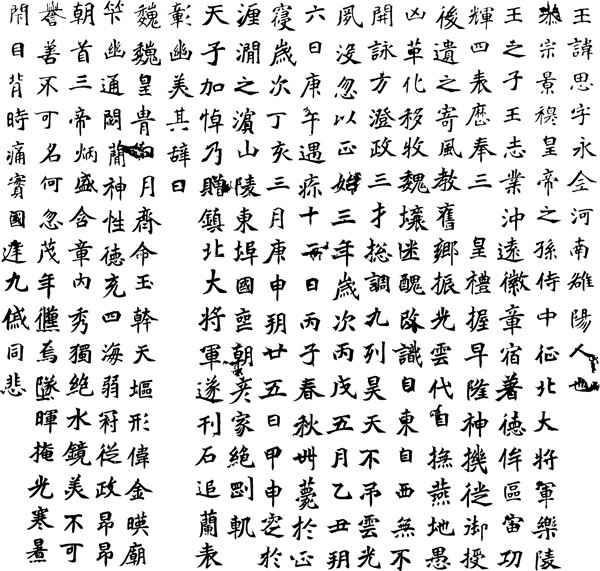 王諱思字永全河南雒陽人也
恭宗景穆皇帝之孫侍中征北大將軍樂陵
王之子王志業沖遠徽章宿著德侔區宙功
輝四表歷奉三　皇禮握早隆神機徙御授
後遺之寄風教舊鄉振光雲代自撫燕地愚
凶革化移牧魏壤迷醜改識自東自西無不
開詠方澄政三才揔調九列昊天不弔雲光
夙沒忽以正始三年歲次丙戌五月乙丑朔
六日庚午遇疹十二日丙子春秋卌薨於正
寢歲次丁亥三月庚申朔廿五日甲申窆於
瀍澗之濵山陵東埠國喪朝彥家絕剛軌
天子加悼乃贈鎮北大將軍遂刊石追蘭表
彰幽美其辭曰
魏魏皇胄月齊命玉幹天堰形偉金暎廟
竿幽通閟蘭神性德充四海弱冠從政昂昂
朝首三帝炳盛含章內秀獨絕水鏡美不可
譽善不可名何忽茂年儵焉墜暉掩光寒暑
閇日背時痛賓國逹九慼同悲